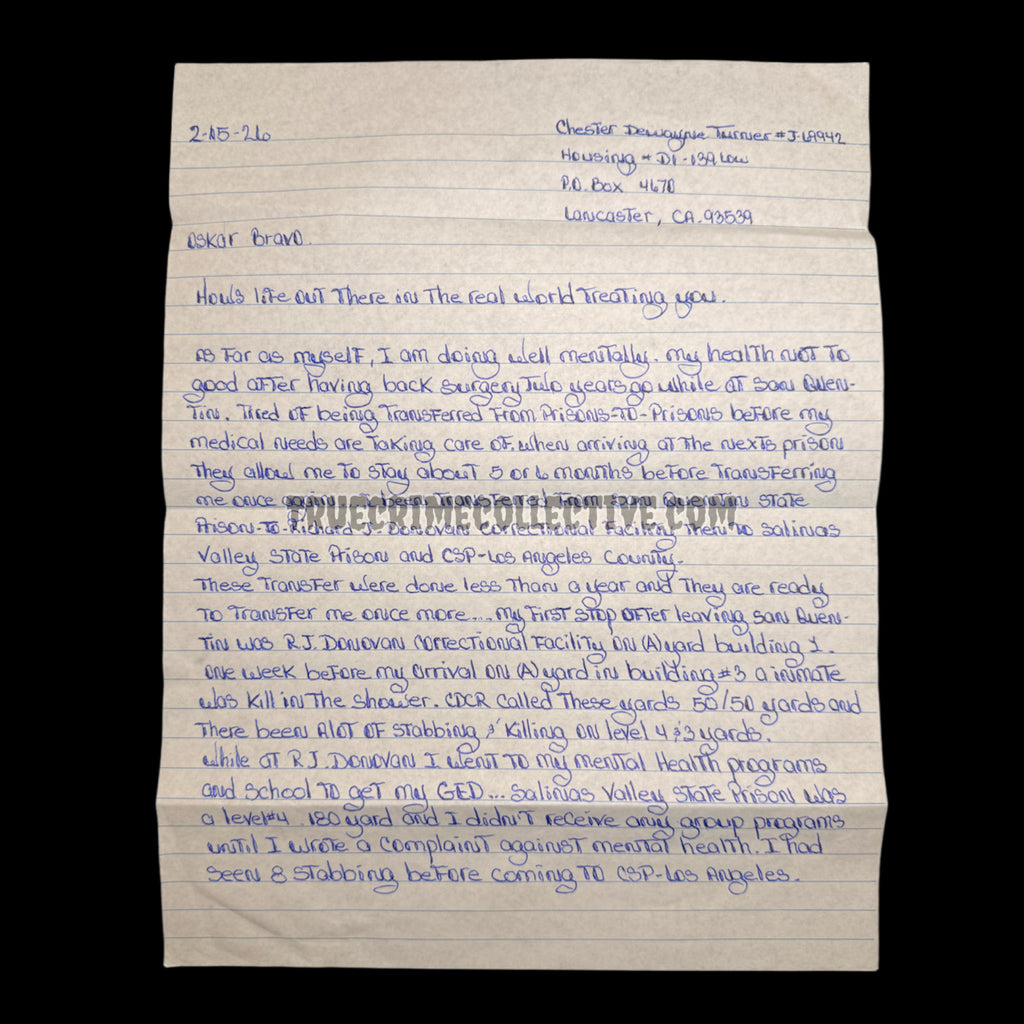 2-15-26
Chester Dewayne Turner # J-69942
Housing - D1-139 Low
P.O. Box 4670
Lancaster, CA. 93539
Oskar Bravo.
How's life out there in the real world treating you.
As far as myself, I am doing well mentally. my health not to
good after having back surgery two years go while at San Quen-
tin. Tired of being transferred from Prisons-to-Prisons before my
medical needs are taking care of. when arriving at the nexts prison
they allow me to stay about 5 or 6 months before transferring
me once again been transferred from San Quentin State
TRUECRIMECOLLECTIVE.COM
Prison-to-Richard J. Donovan Correctional Facility then to Salinias
Valley State Prison and CSP-Los Angeles County.
These transfer were done less than a year and they are ready
to transfer me once more.... my first stop after leaving San Quen-
tin was R.J. Donovan Correctional Facility on (A) yard building 1.
one week before my arrival on (A) yard in building #3 a inmate
was kill in the shower. CDCR called these yards 50/50 yards and
there been alot of stabbing & killing on level 4 & 3 yards.
while at R.J. Donovan I went to my mental Health programs
and school to get my GED... Salinias Valley State Prison was
a level #4 180 yard and I didn't receive any group programs
until I wrote a complaint against mental health. I had
seen 8 stabbing before coming to CSP-Los Angeles.